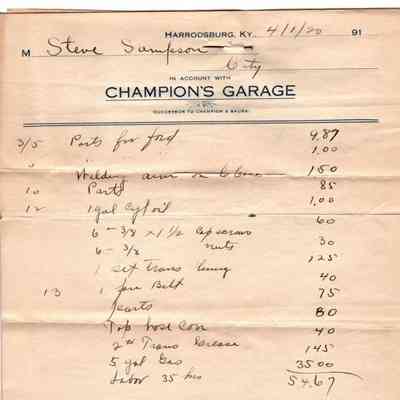 HARRODSBURG, KY. 4/1/20 191
M Steve Sampson
City
IN ACCOUNT WITH
CHAMPION'S GARAGE
SUCCESSOR TO CHAMPION & BAUGH
3/5 Parts for ford 4.87
1.00
" Welding arm on 150
10 Parts 85
12 1 gal Cyl oil 1.00
6 - 3/8 x 1 1/2 Cap screws 60
6 - 3/8 nuts 30
1 set trans lining 125
13 1 fan Belt 40
75
Top hose Con 80
2# Trans Grease 40
5 gal Gas 145
Labor 35 hrs 35 00
54.67